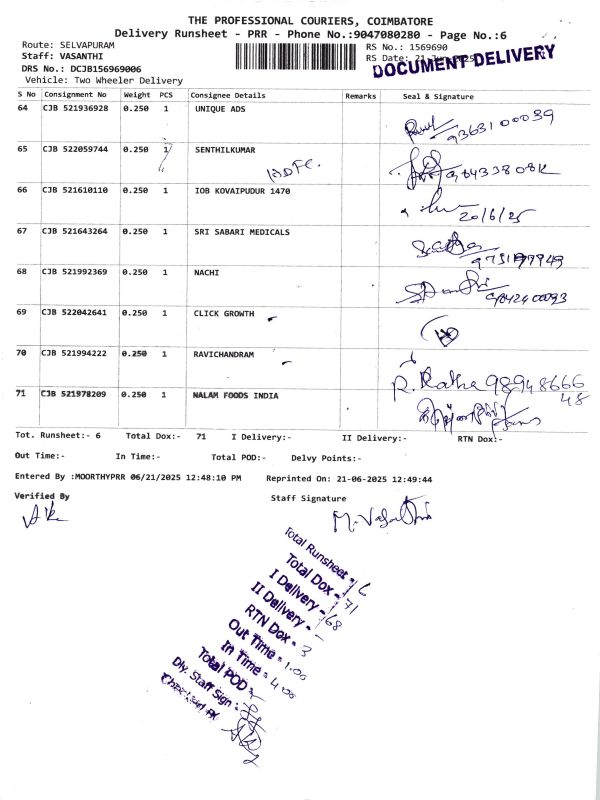 THE PROFESSIONAL COURIERS, COIMBATORE
Delivery Runsheet - PRR - Phone No.:9047080280 - Page No.:6
Route: SELVAPURAM
RS No.: 1569690
Staff: VASANTHI
RS Date: 21-Jun-2025
DOCUMENT DELIVERY
DRS No.: DCJB156969006
Vehicle: Two Wheeler Delivery
S No Consignment No Weight PCS Consignee Details Remarks Seal & Signature
64 CJB 521936928 0.250 1 UNIQUE ADS
9363100039
65 CJB 522059744 0.250 1 SENTHILKUMAR
HDFC.
66 CJB 521610110 0.250 1 IOB KOVAIPUDUR 1470
20/6/25
67 CJB 521643264 0.250 1 SRI SABARI MEDICALS
68 CJB 521992369 0.250 1 NACHI
69 CJB 522042641 0.250 1 CLICK GROWTH
70 CJB 521994222 0.250 1 RAVICHANDRAM
R. Ratha 98948666
48
71 CJB 521978209 0.250 1 NALAM FOODS INDIA
Tot. Runsheet:- 6 Total Dox:- 71 I Delivery:- II Delivery:- RTN Dox:-
Out Time:- In Time:- Total POD:- Delvy Points:-
Entered By :MOORTHYPRR 06/21/2025 12:48:10 PM Reprinted On: 21-06-2025 12:49:44
Verified By Staff Signature
M. Vasanthi
Total Runsheet - 6
Total Dox - 71
I Delivery - 68
II Delivery - -
RTN Dox - 3
Out Time - 1.00
In Time - 4.00
Total POD -
Dly. Staff Sign :